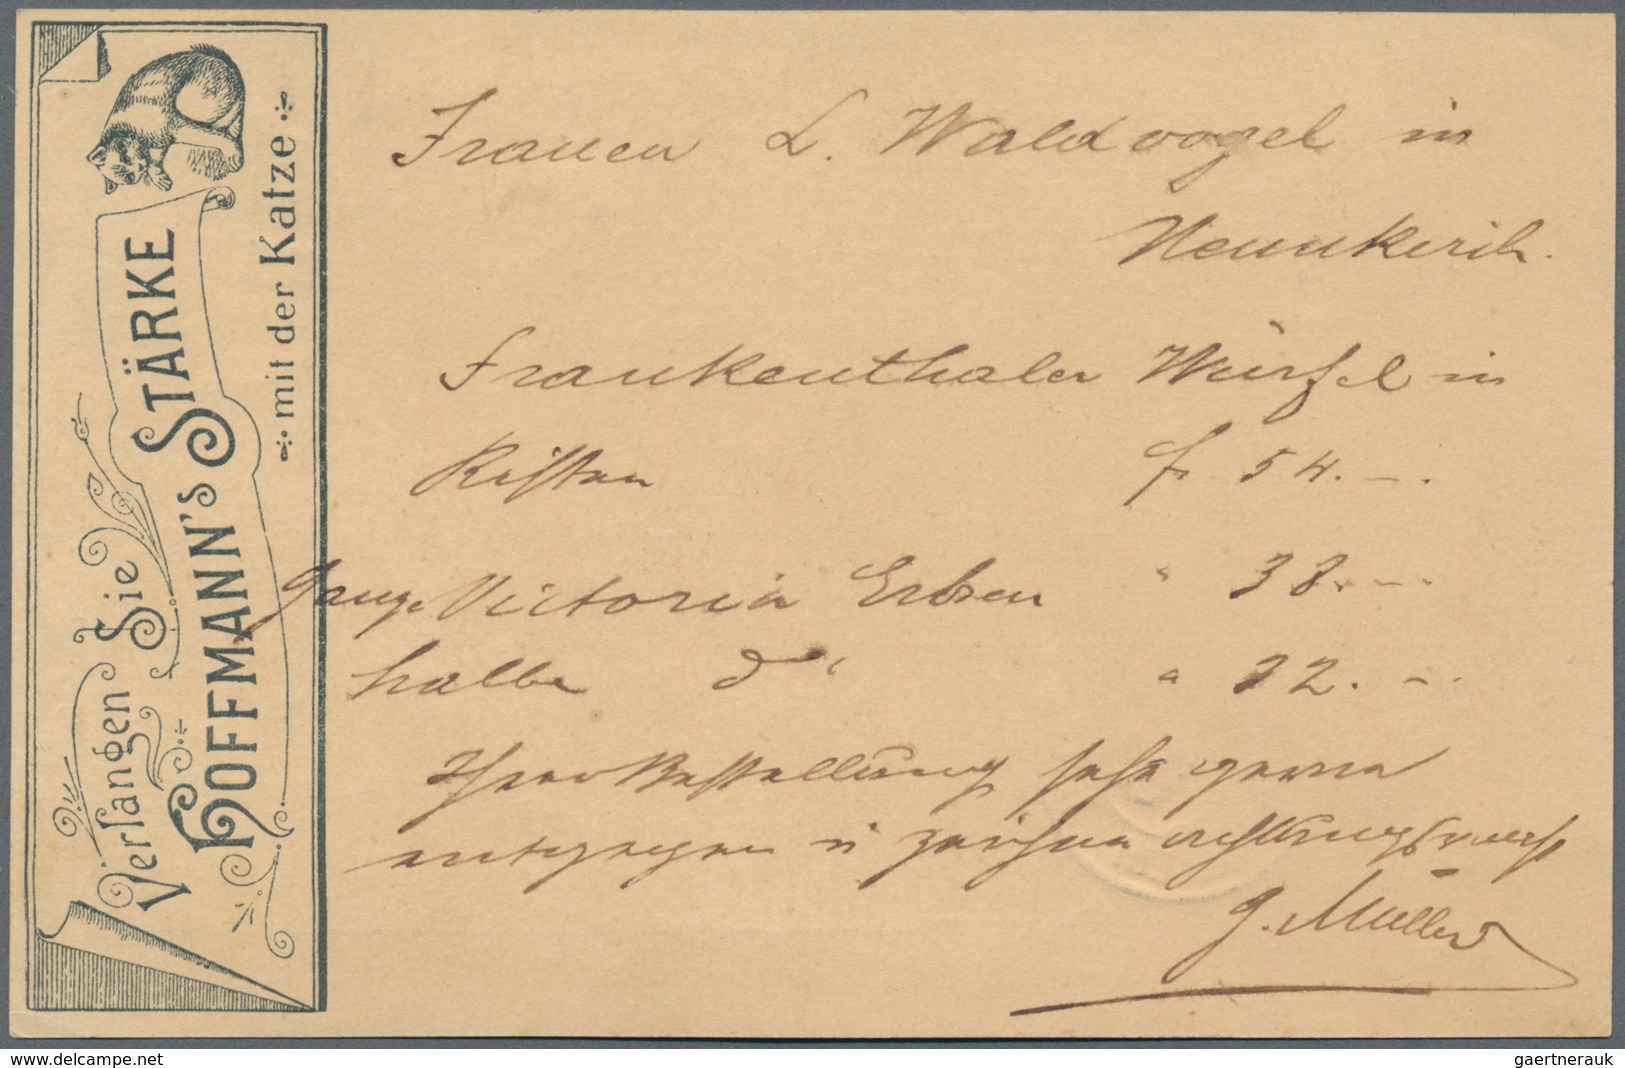 Verlangen Sie
HOFFMANN'S STÄRKE
mit der Katze
Frauen L. Waldvogel in
Neunkirch.
Frankenthaler Würfel in
Kisten fr 54. – .
Ganze Victoria Erbsen " 38. – –
halbe do " 32. – .
Ihrer Bestellung sehe gerne
entgegen u zeichne achtungsvollst
G. Müller
delcampe.net
gaertnerauk